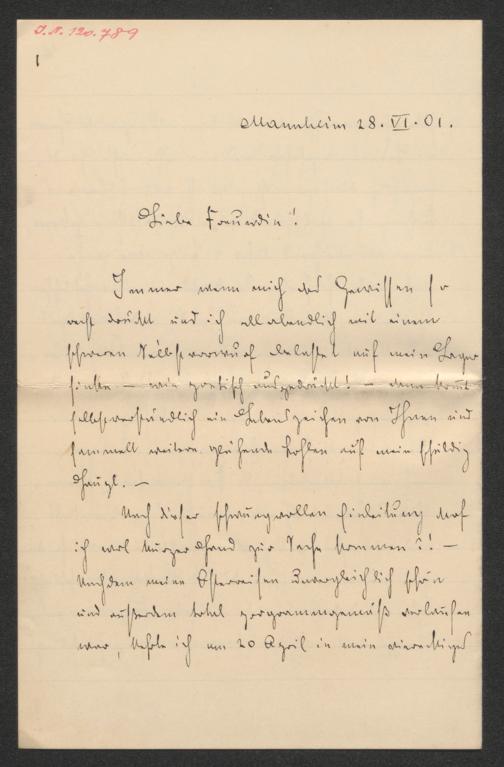 J.N. 120.789
1
Mannheim 28. VI. 01.
Liebe Freundin!
Immer wenn mich das Gewissen so
recht drückt und ich allabendlich mit einem
schweren Selbstvorwurf belastet auf mein Lager
sinke – wie poetisch ausgedrückt! – dann kommt
selbstverständlich ein Lebenszeichen von Ihnen und
sammelt weitere glühende Kohlen auf mein schuldig
Haupt. –
Nach dieser schwungvollen Einleitung darf
ich wol kurzer Hand zur Sache kommen?! –
Nachdem meine Osterreisen unvergleichlich schön
und außerdem total programmgemäß verlaufen
war, kehrte ich am 20 April in mein viereckiges